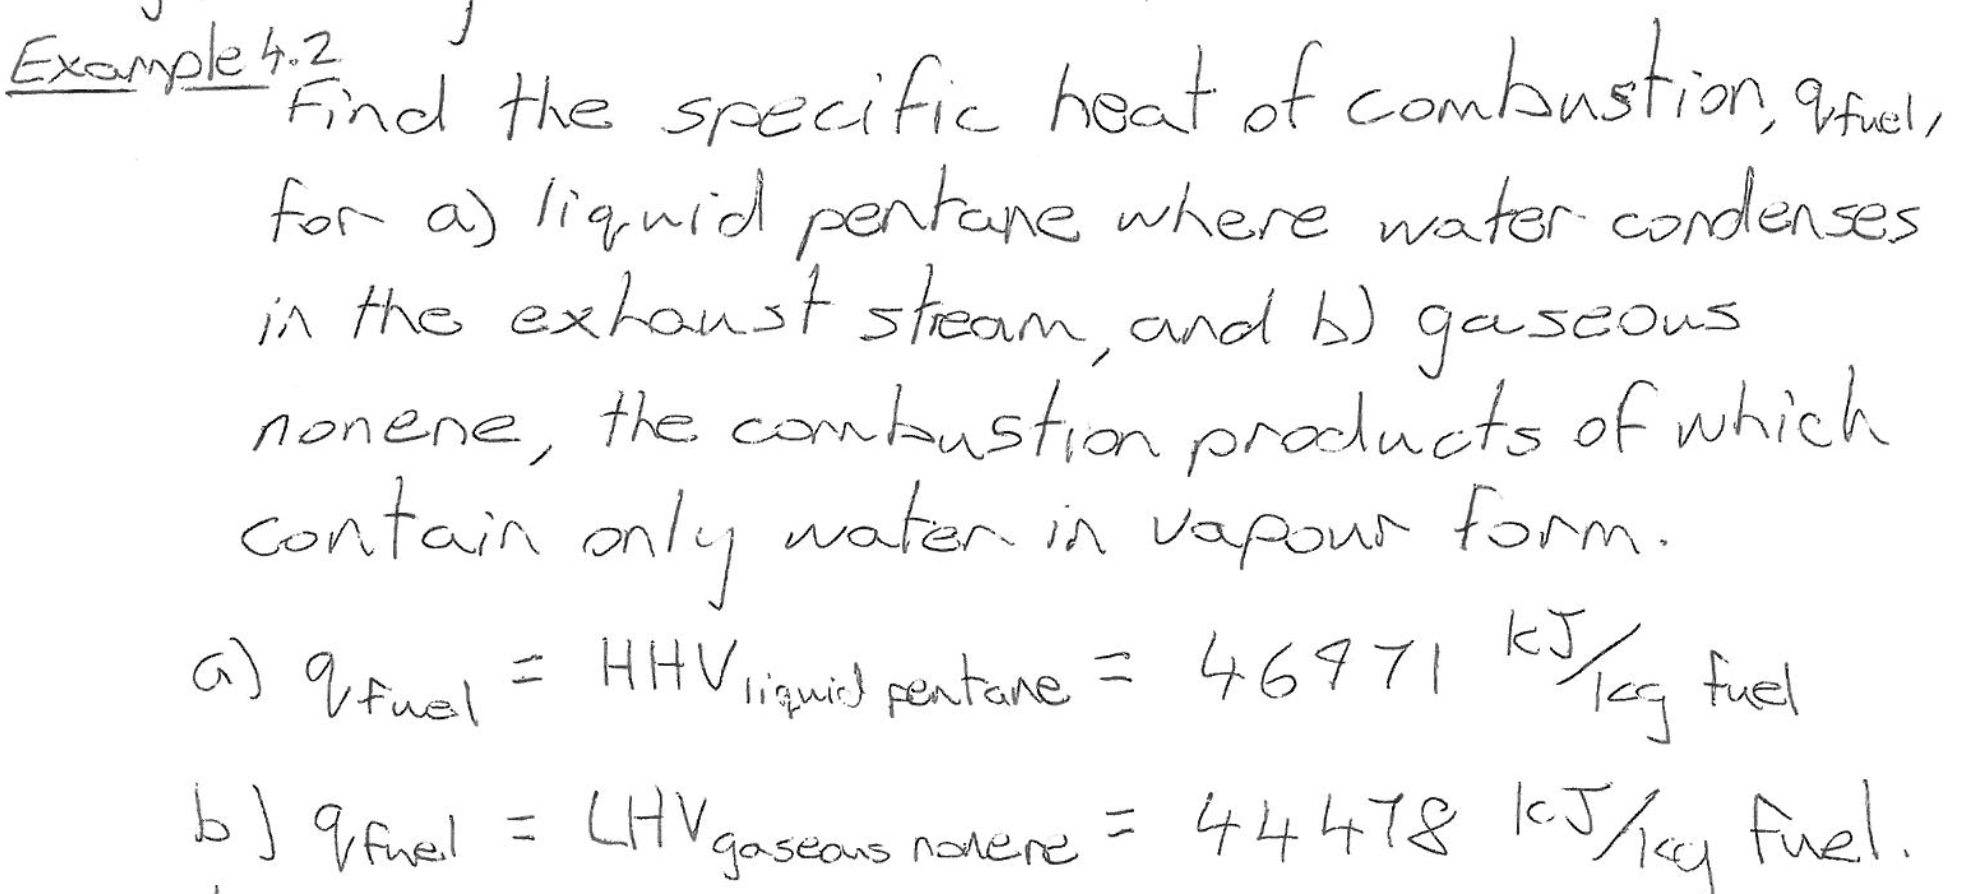 Example 4.2
Find the specific heat of combustion, qfuel,
for a) liquid pentane where water condenses
in the exhaust stream, and b) gaseous
nonene, the combustion products of which
contain only water in vapour form.
a) qfuel = HHV liquid pentane = 46971 kJ/kg fuel
b) qfuel = LHV gaseous nonene = 44478 kJ/kg fuel.